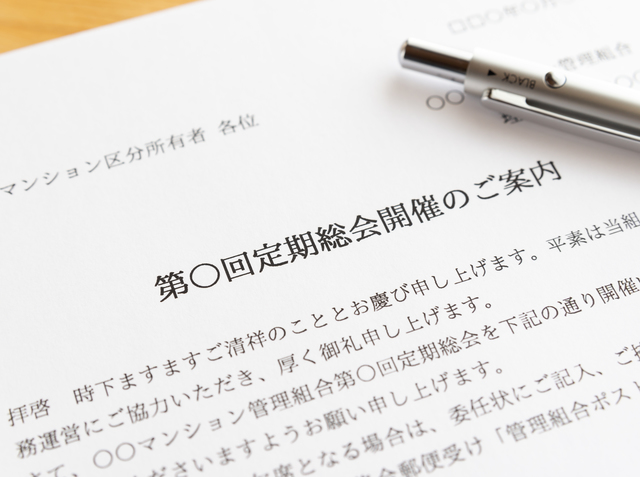 □□○年○月
管理組合
○○
BLACK
マンション区分所有者 各位
第○回定期総会開催のご案内
拝啓 時下ますますご清祥のこととお慶び申し上げます。平素は当組
務運営にご協力いただき、厚く御礼申し上げます。
て、○○マンション管理組合第○回定期総会を下記の通り開催
ださいますようお願い申し上げます。
席となる場合は、委任状にご記入、ご
郵便受け「管理組合ポス